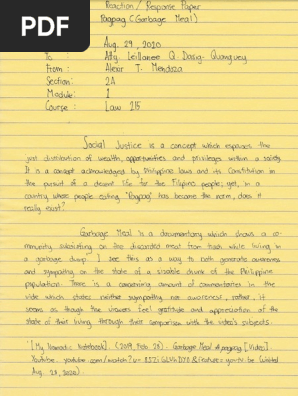 PDF
Reaction / Response Paper
Pagpag (Garbage Meal)
Aug. 29, 2020
To : Atty. Leilanee Q. Dasig-Quanguey
From : Alexir T. Mendoza
Section: 2A
Module: 1
Course : Law 215
Social Justice is a concept which espouses the
just distribution of wealth, opportunities and privileges within a society.
It is a concept acknowledged by Philippine laws and its Constitution in
the pursuit of a decent life for the Filipino people; yet, in a
country where people eating "Pagpag" has become the norm, does it
really exist?
Garbage Meal is a documentary which shows a co-
mmunity subsisting on the discarded meat from trash while living in
a garbage dump. I see this as a way to both generate awareness
and sympathy on the state of a sizable chunk of the Philippine
population. There is a concerning amount of commentaries in the
vide which states neither sympathy nor awareness, rather, it
seems as though the viewers feel gratitude and appreciation of the
state of their living through their comparison with the video's subjects.
[My Nomadic Notebook]. (2019, Feb. 28). Garbage Meal #pagpag [Video].
Youtube. youtube.com/watch?v=
&feature=youtu.be (visited
Aug. 29, 2020).